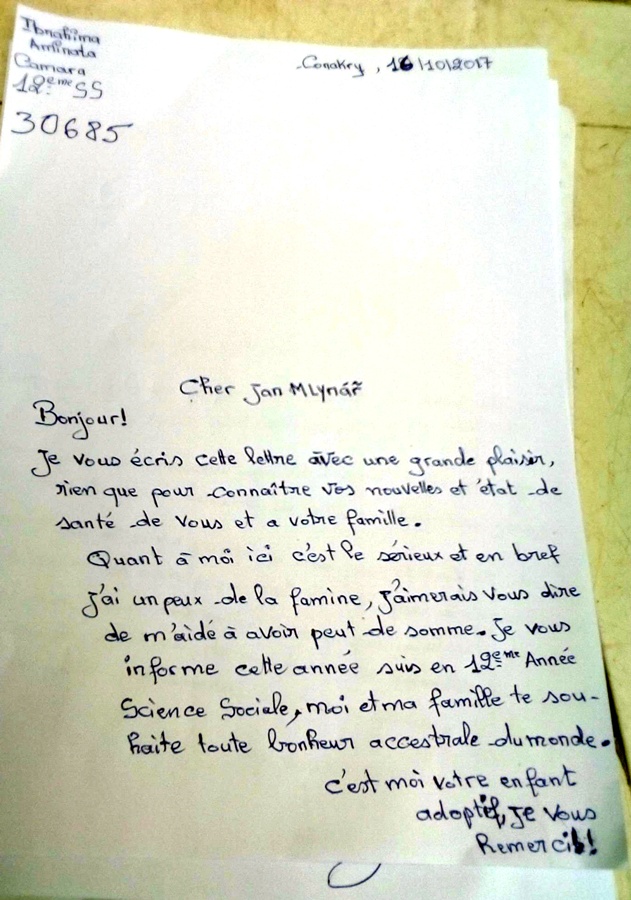 Ibrahima
Aminata
Camara
12ème SS
30685
Conakry, 16/10/2017
Cher Jan Mlynář
Bonjour!
Je vous écris cette lettre avec une grande plaisir,
rien que pour connaître vos nouvelles et état de
santé de vous et a votre famille.
Quant à moi ici c'est le sérieux et en bref
j'ai un peux de la famine, j'aimerais vous dire
de m'aidé à avoir peut de somme. Je vous
informe cette année suis en 12ème Année
Science Sociale, moi et ma famille te sou-
haite toute bonheur accestrale du monde.
c'est moi votre enfant
adoptif, je vous
Remercie!